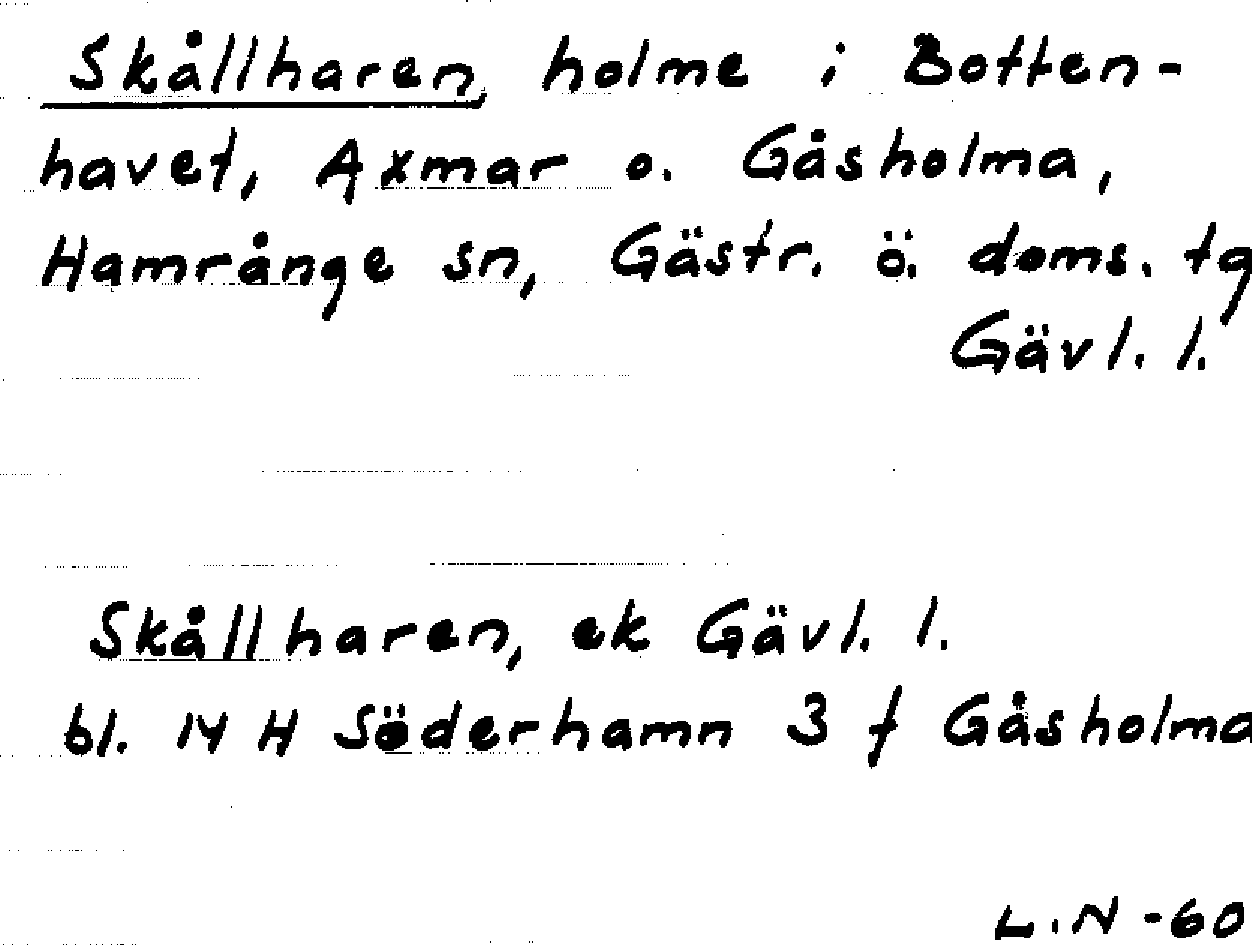 Skållharen, holme i Botten-
havet, Axmar o. Gåsholma,
Hamrånge sn, Gästr. ö. doms. tg
Gävl. l.
Skållharen, ek Gävl. l.
bl. 14 H Söderhamn 3 f Gåsholma
L.N -60